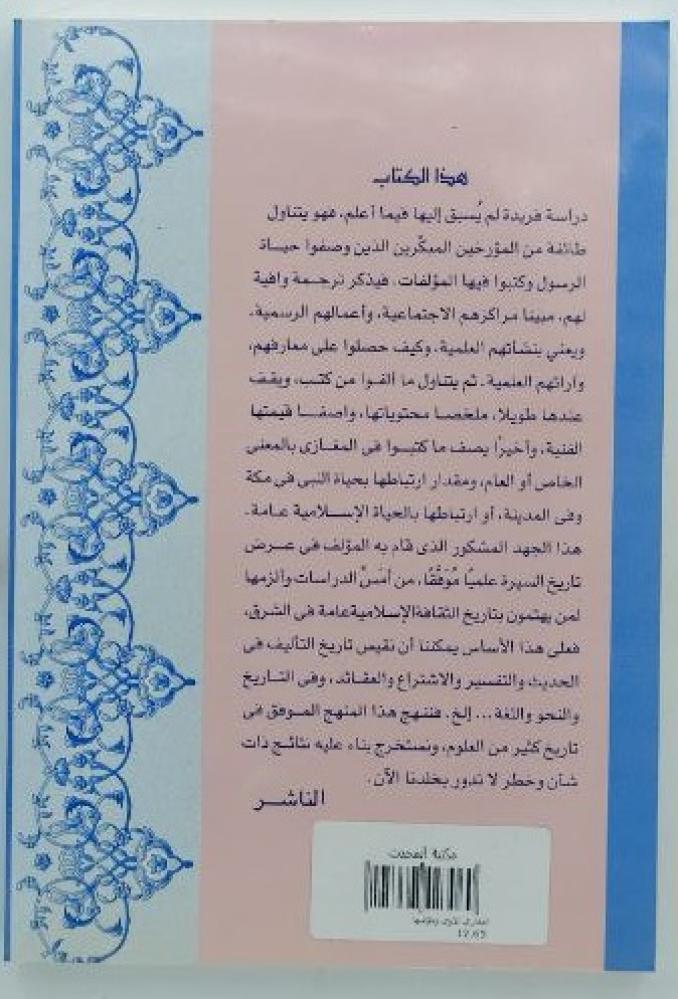 هذا الكتاب
دراسة فريدة لم يُسبق إليها فيما أعلم، فهو يتناول
طائفة من المؤرخين المبكِّرين الذين وصفوا حياة
الرسول وكتبوا فيها المؤلفات، فيذكر ترجمة وافية
لهم، مبينا مراكزهم الاجتماعية، وأعمالهم الرسمية،
ويعني بنشأتهم العلمية، وكيف حصلوا على معارفهم،
وآرائهم العلمية. ثم يتناول ما ألفوا من كتب، ويقف
عندها طويلا، ملخصا محتوياتها، واصفا قيمتها
الفنية، وأخيرًا يصف ما كتبوا فى المغازى بالمعنى
الخاص أو العام، ومقدار ارتباطها بحياة النبى فى مكة
وفى المدينة، أو ارتباطها بالحياة الإسلامية عامة.
هذا الجهد المشكور الذى قام به المؤلف فى عرض
تاريخ السيرة علميًا مُوَفَّقًا، من أمَسِّ الدراسات وألزمها
لمن يهتمون بتاريخ الثقافة الإسلامية عامة فى الشرق،
فعلى هذا الأساس يمكننا أن نقيس تاريخ التأليف فى
الحديث والتفسير والاشتراع والعقائد، وفى التاريخ
والنحو واللغة ... إلخ. فننهج هذا المنهج الموفق فى
تاريخ كثير من العلوم، ونستخرج بناء عليه نتائج ذات
شأن وخطر لا تدور بخلدنا الآن.
الناشر
مكتبة المحدث
المغازى الأولى ومؤلفوها